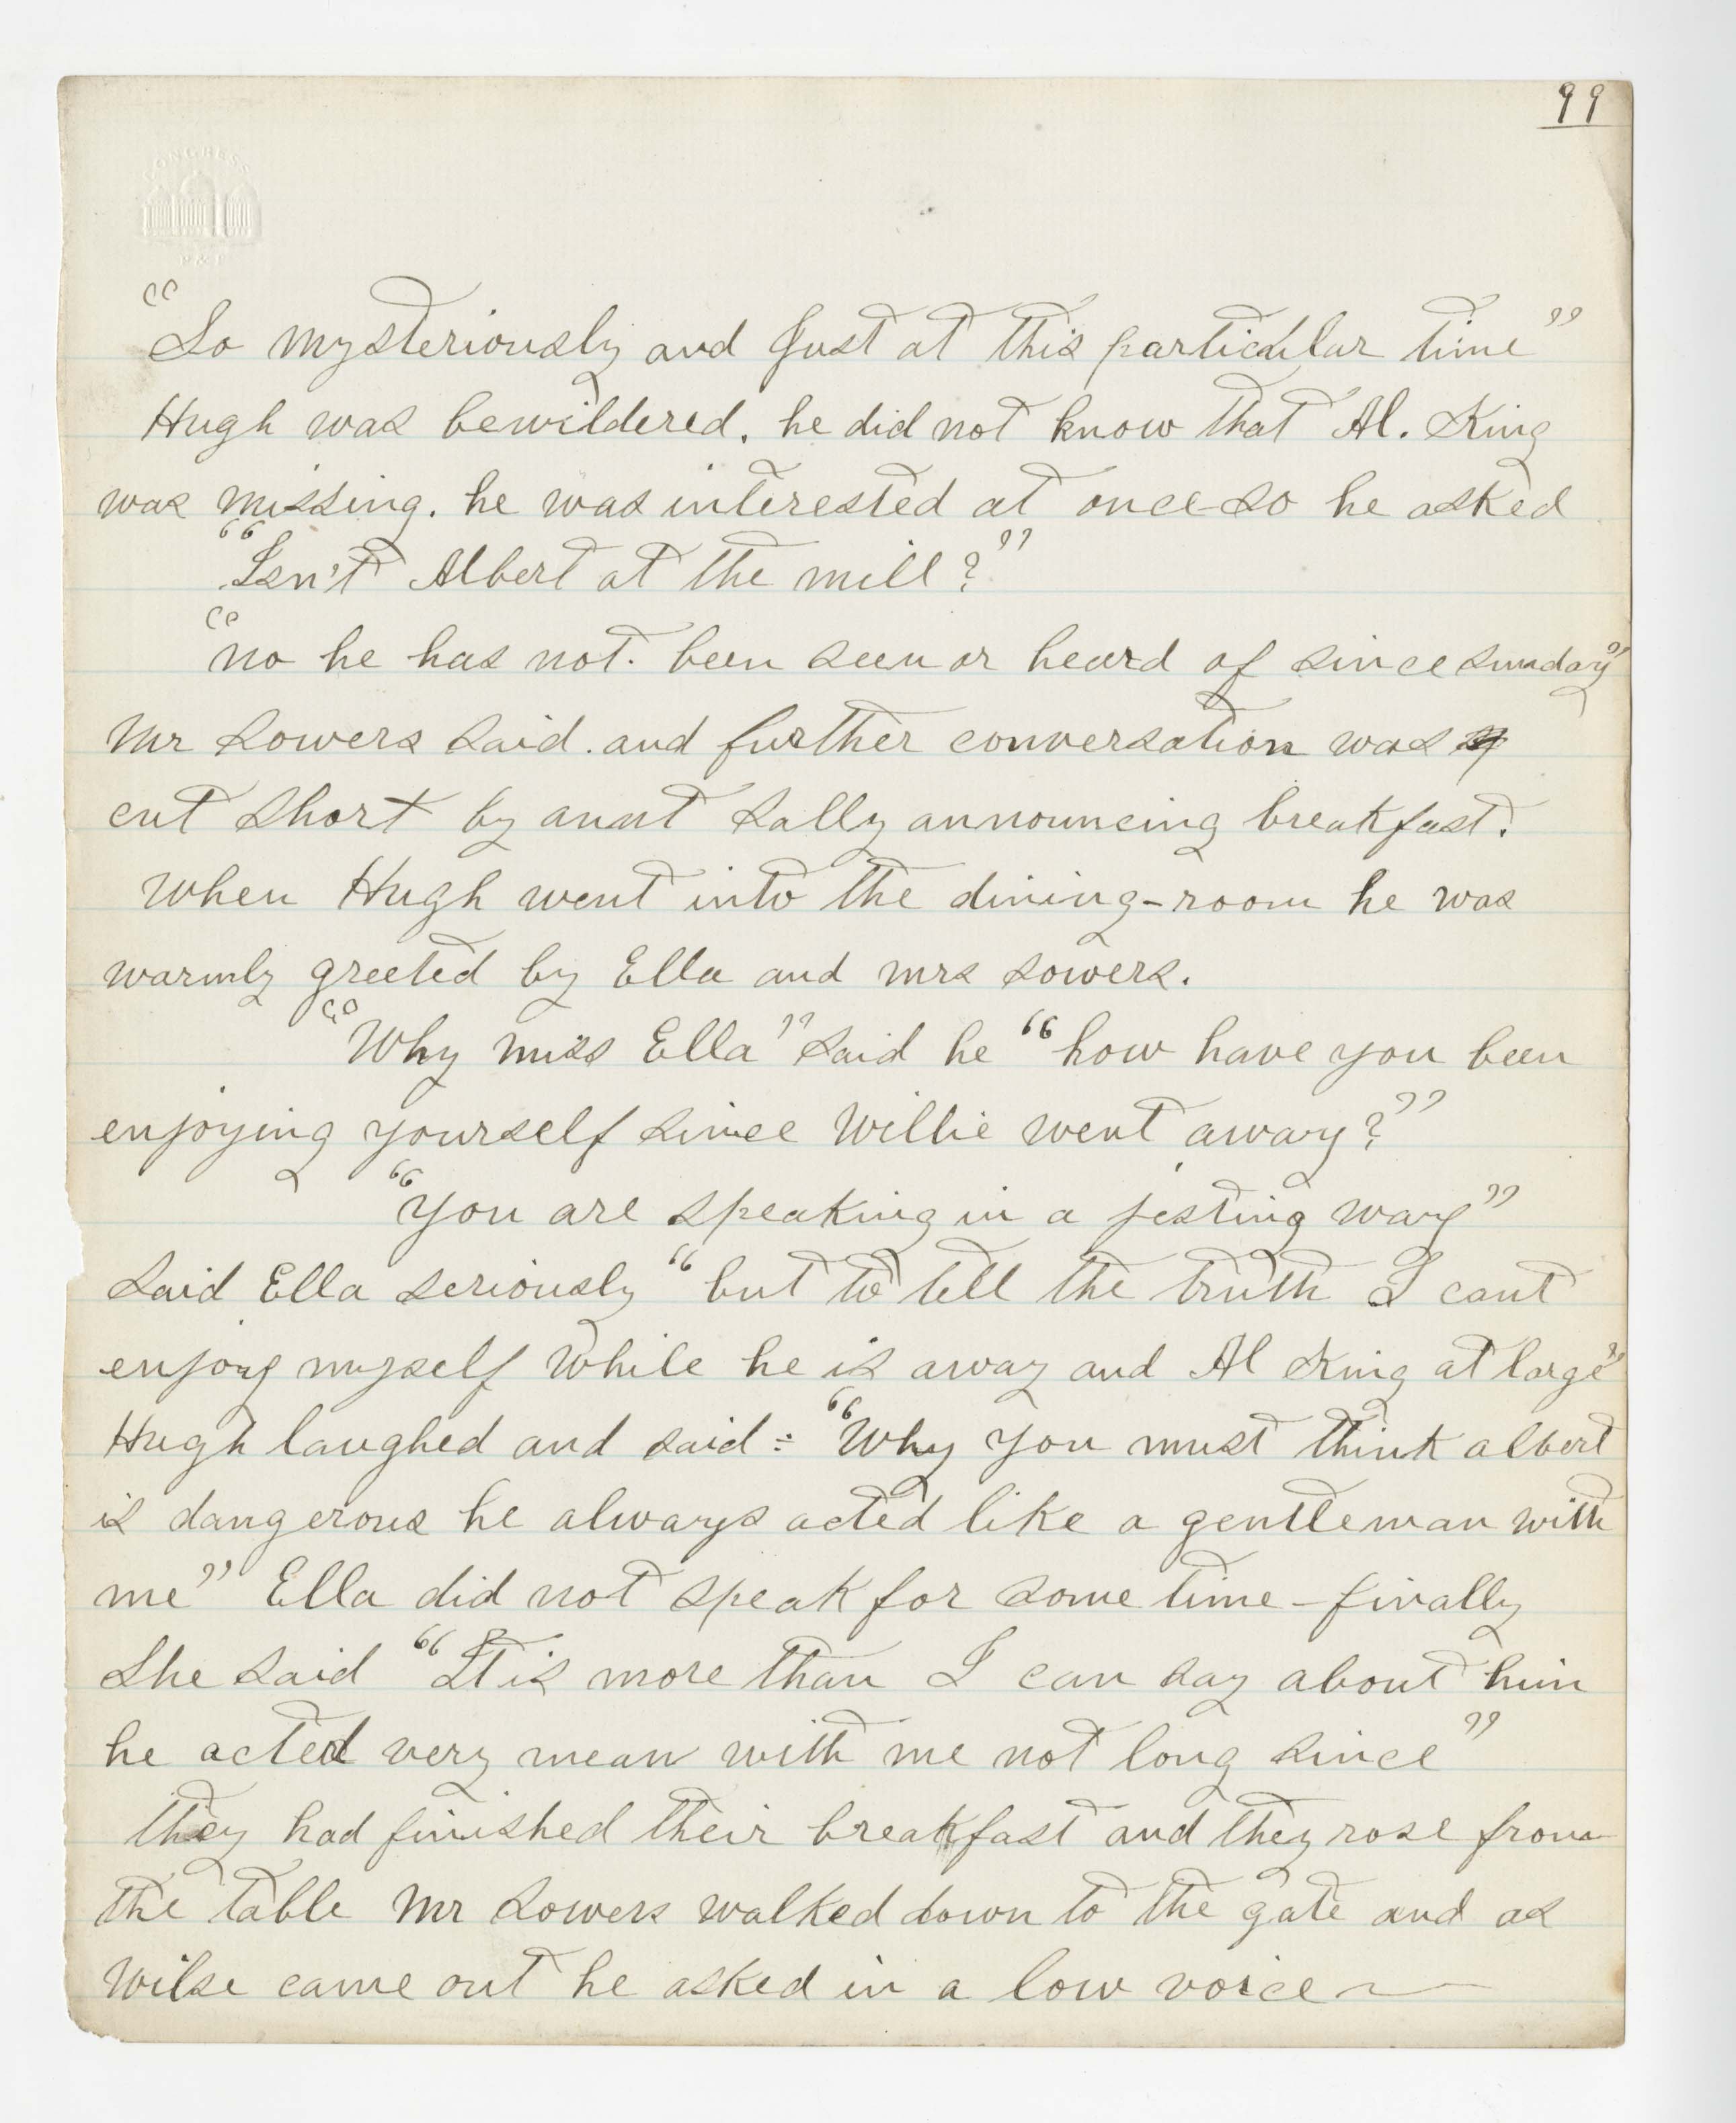 99
CONGRESS
P & P
"So mysteriously and Just at this particular time"
Hugh was bewildered. he did not know that Al. King
was missing. he was interested at once so he asked
"Isn't Albert at the mill?"
"no he has not. been seen or heard of since sunday"
Mr Sowers said. and further conversation was
cut short by aunt Sally announcing breakfast.
When Hugh went into the dining-room he was
warmly greeted by Ella and mrs Sowers.
"Why miss Ella" said he "how have you been
enjoying yourself since Willie went away?"
"You are speaking in a jesting way"
said Ella seriously "but to tell the truth I cant
enjoy myself While he is away and Al King at large"
Hugh laughed and said:- "Why you must think albert
is dangerous he always acted like a gentleman with
me" Ella did not speak for some time - finally
She said "It is more than I can say about him
he acted very mean with me not long since"
they had finished their breakfast and they rose from
the table Mr Sowers walked down to the gate and as
Wilse came out he asked in a low voice —